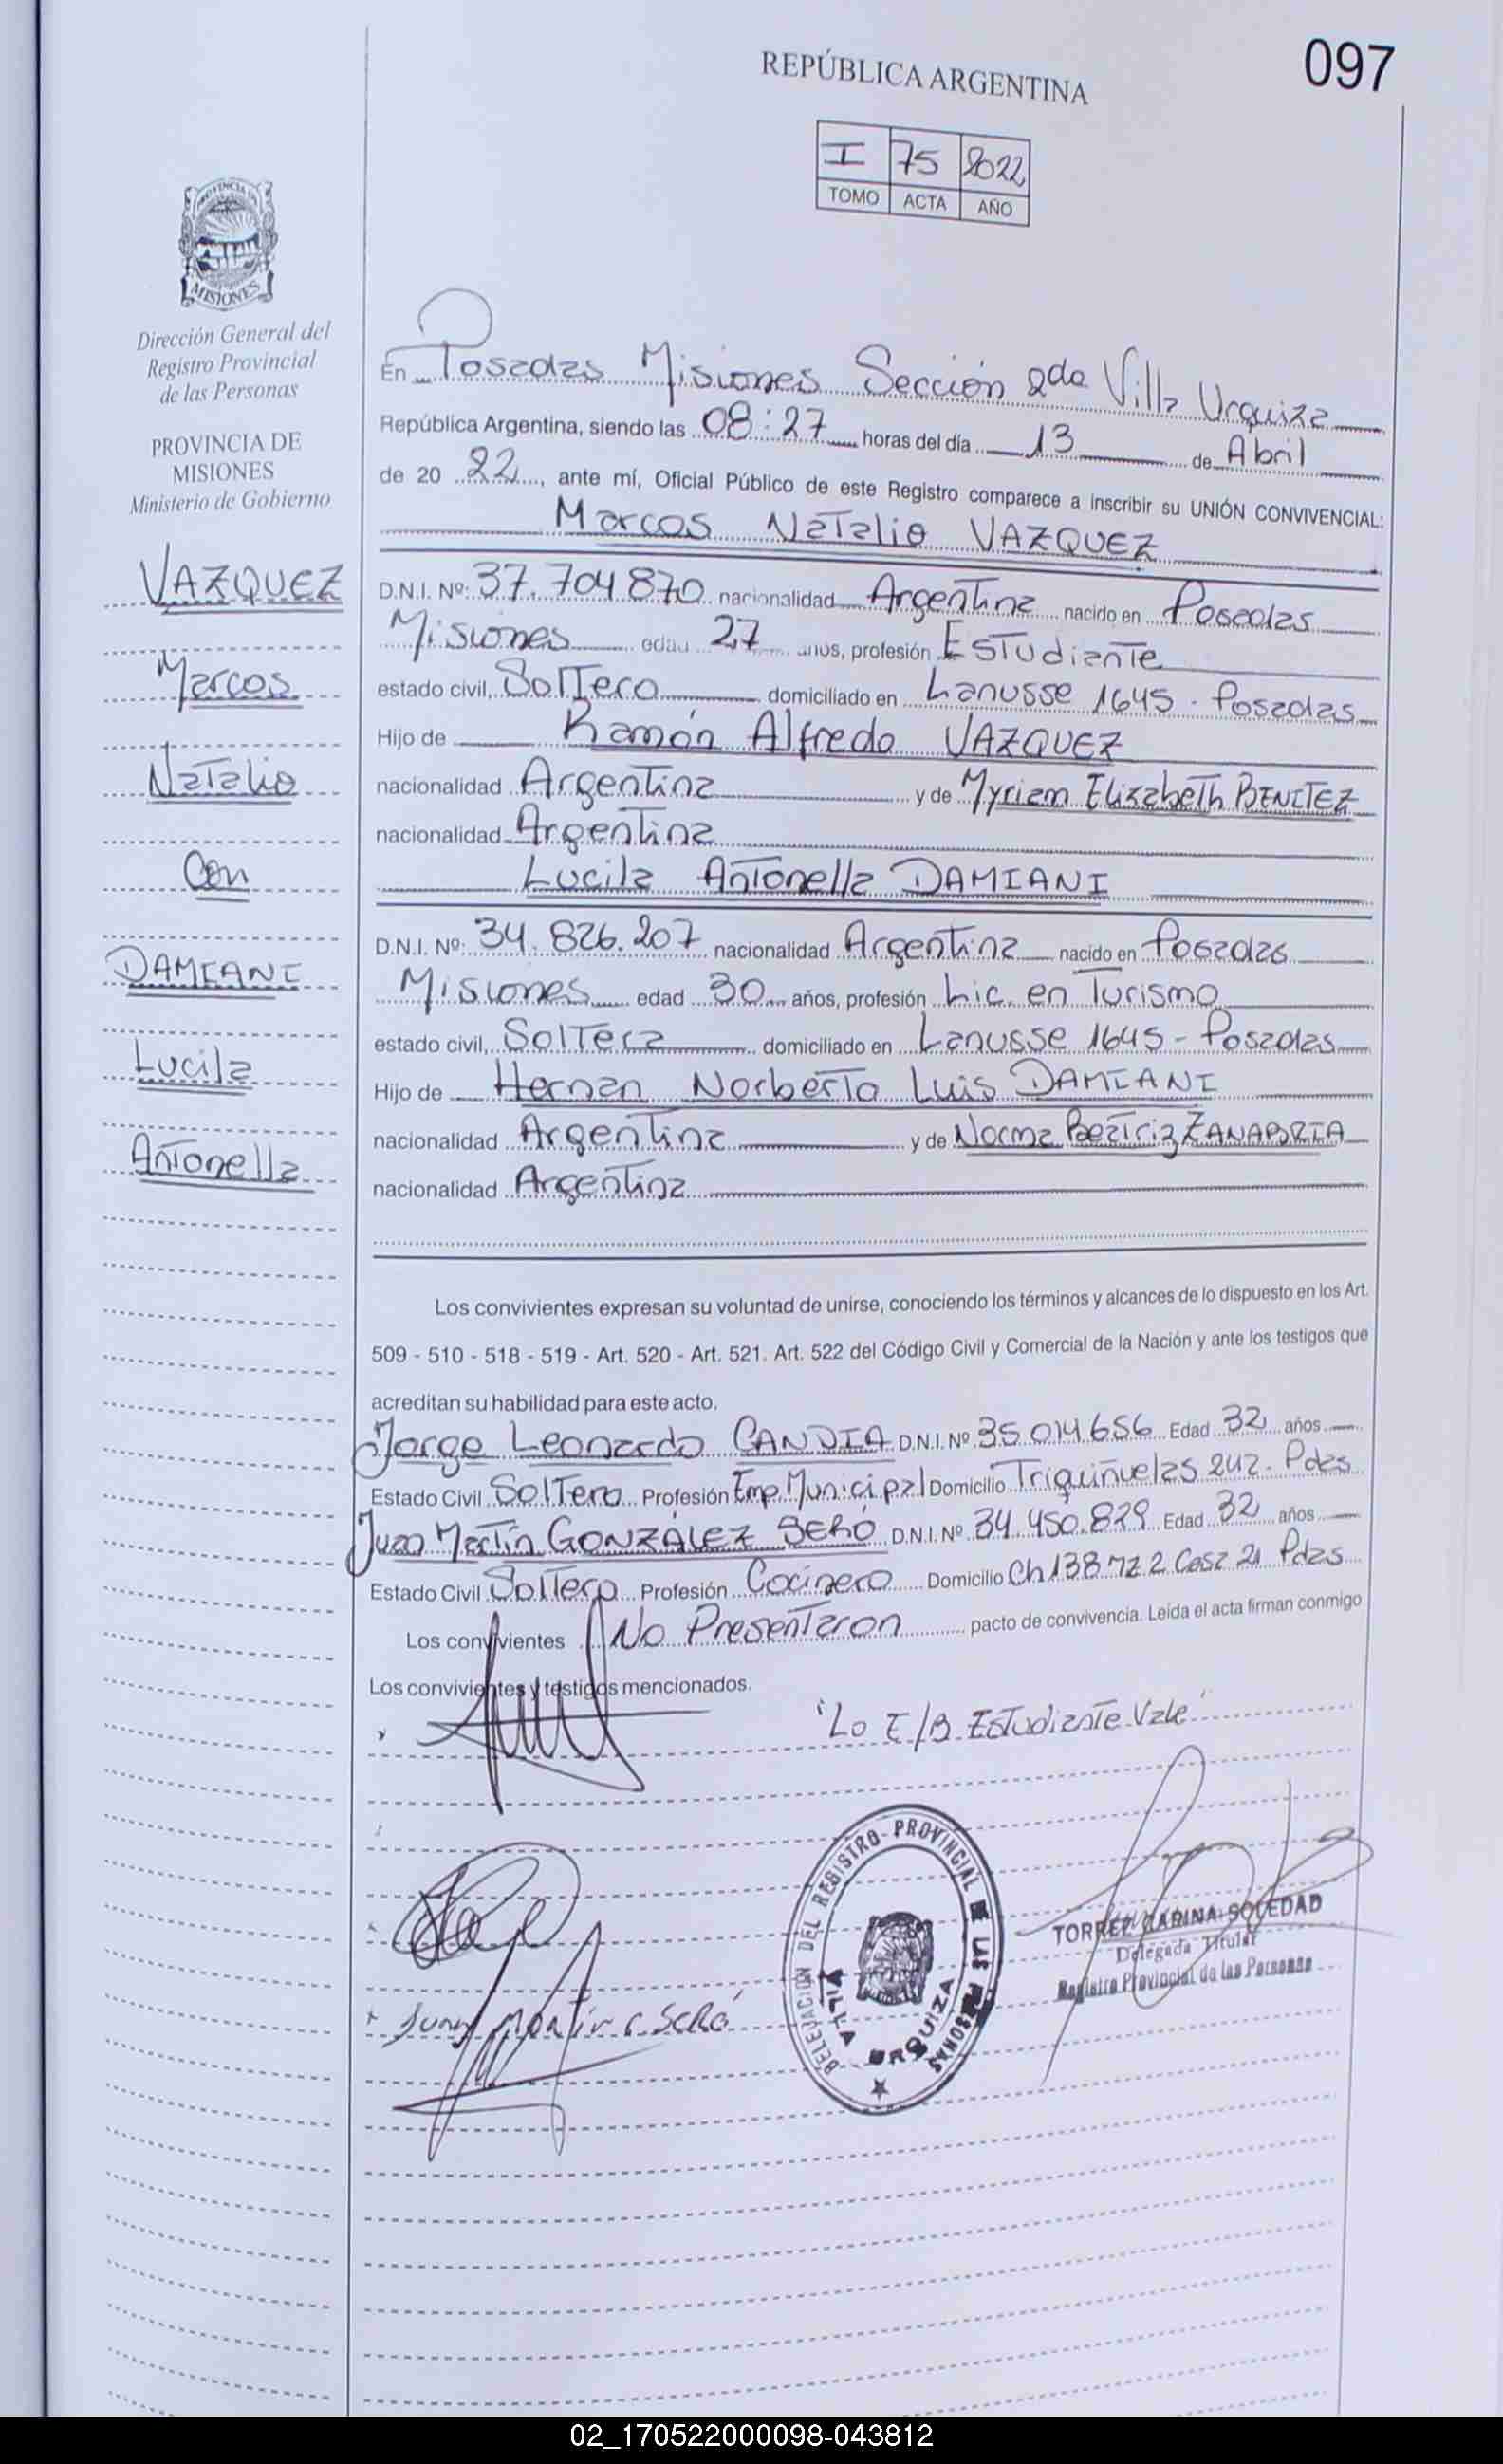 097
REPÚBLICA ARGENTINA
I 75 2022
TOMO ACTA AÑO
MISIONES
Dirección General del
Registro Provincial
de las Personas
PROVINCIA DE
MISIONES
Ministerio de Gobierno
VAZQUEZ
Marcos
Natalio
Con
DAMIANI
Lucila
Antonella
En Posadas Misiones Sección 2da Villa Urquiza
República Argentina, siendo las 08:27 horas del día 13 de Abril
de 20 22, ante mí, Oficial Público de este Registro comparece a inscribir su UNIÓN CONVIVENCIAL:
Marcos Natalio VAZQUEZ
D.N.I. Nº: 37.704870 nacionalidad Argentina nacido en Posadas
Misiones edad 27 años, profesión Estudiante
estado civil, Soltero domiciliado en Lanusse 1645 - Posadas
Hijo de Ramón Alfredo VAZQUEZ
nacionalidad Argentina y de Myriam Elizabeth BENITEZ
nacionalidad Argentina
Lucila Antonella DAMIANI
D.N.I. Nº: 34.826.207 nacionalidad Argentina nacido en Posadas
Misiones edad 30 años, profesión Lic. en Turismo
estado civil, Soltera domiciliado en Lanusse 1645 - Posadas
Hijo de Hernan Norberto Luis DAMIANI
nacionalidad Argentina y de Norma Beatriz ZANABRIA
nacionalidad Argentina
Los convivientes expresan su voluntad de unirse, conociendo los términos y alcances de lo dispuesto en los Art.
509 - 510 - 518 - 519 - Art. 520 - Art. 521. Art. 522 del Código Civil y Comercial de la Nación y ante los testigos que
acreditan su habilidad para este acto.
Jorge Leonardo CANDIA D.N.I. Nº 35.014.656 Edad 32 años
Estado Civil Soltero Profesión Emp. Municipal Domicilio Triquiñuelas 242 - Pdas
Juan Martín GONZÁLEZ SERÓ D.N.I. Nº 34.450.829 Edad 32 años
Estado Civil Soltero Profesión Cocinero Domicilio Ch 138 Mz 2 Casa 21 Pdas
Los convivientes No Presentaron pacto de convivencia. Leída el acta firman conmigo
Los convivientes y testigos mencionados.
"Lo E/B Estudiante Vale"
Juan Martin G. Seró
DELEGACIÓN DEL REGISTRO PROVINCIAL DE LAS PERSONAS
VILLA URQUIZA
TORREZ CARINA SOLEDAD
Delegada Titular
Registro Provincial de las Personas
02_170522000098-043812